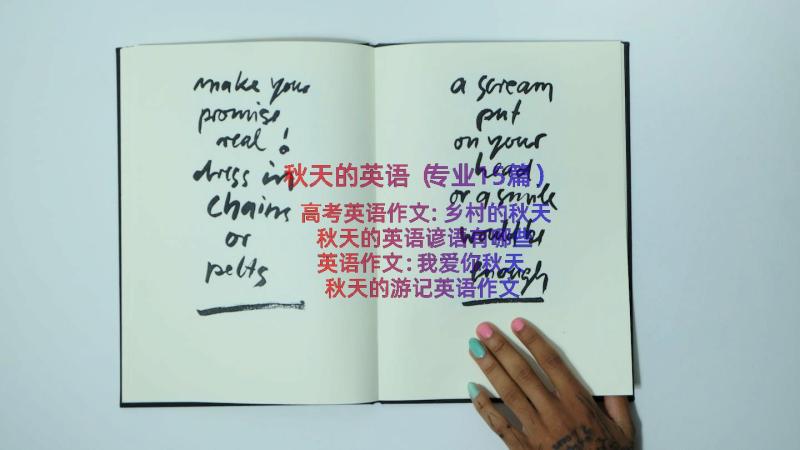 make your
promise
real!
dress in
chains
or
pelts
a scream
put
on your
head
or a smile
would be
enough
秋天的英语（专业15篇）
高考英语作文:乡村的秋天
秋天的英语谚语有哪些
英语作文:我爱你秋天
秋天的游记英语作文